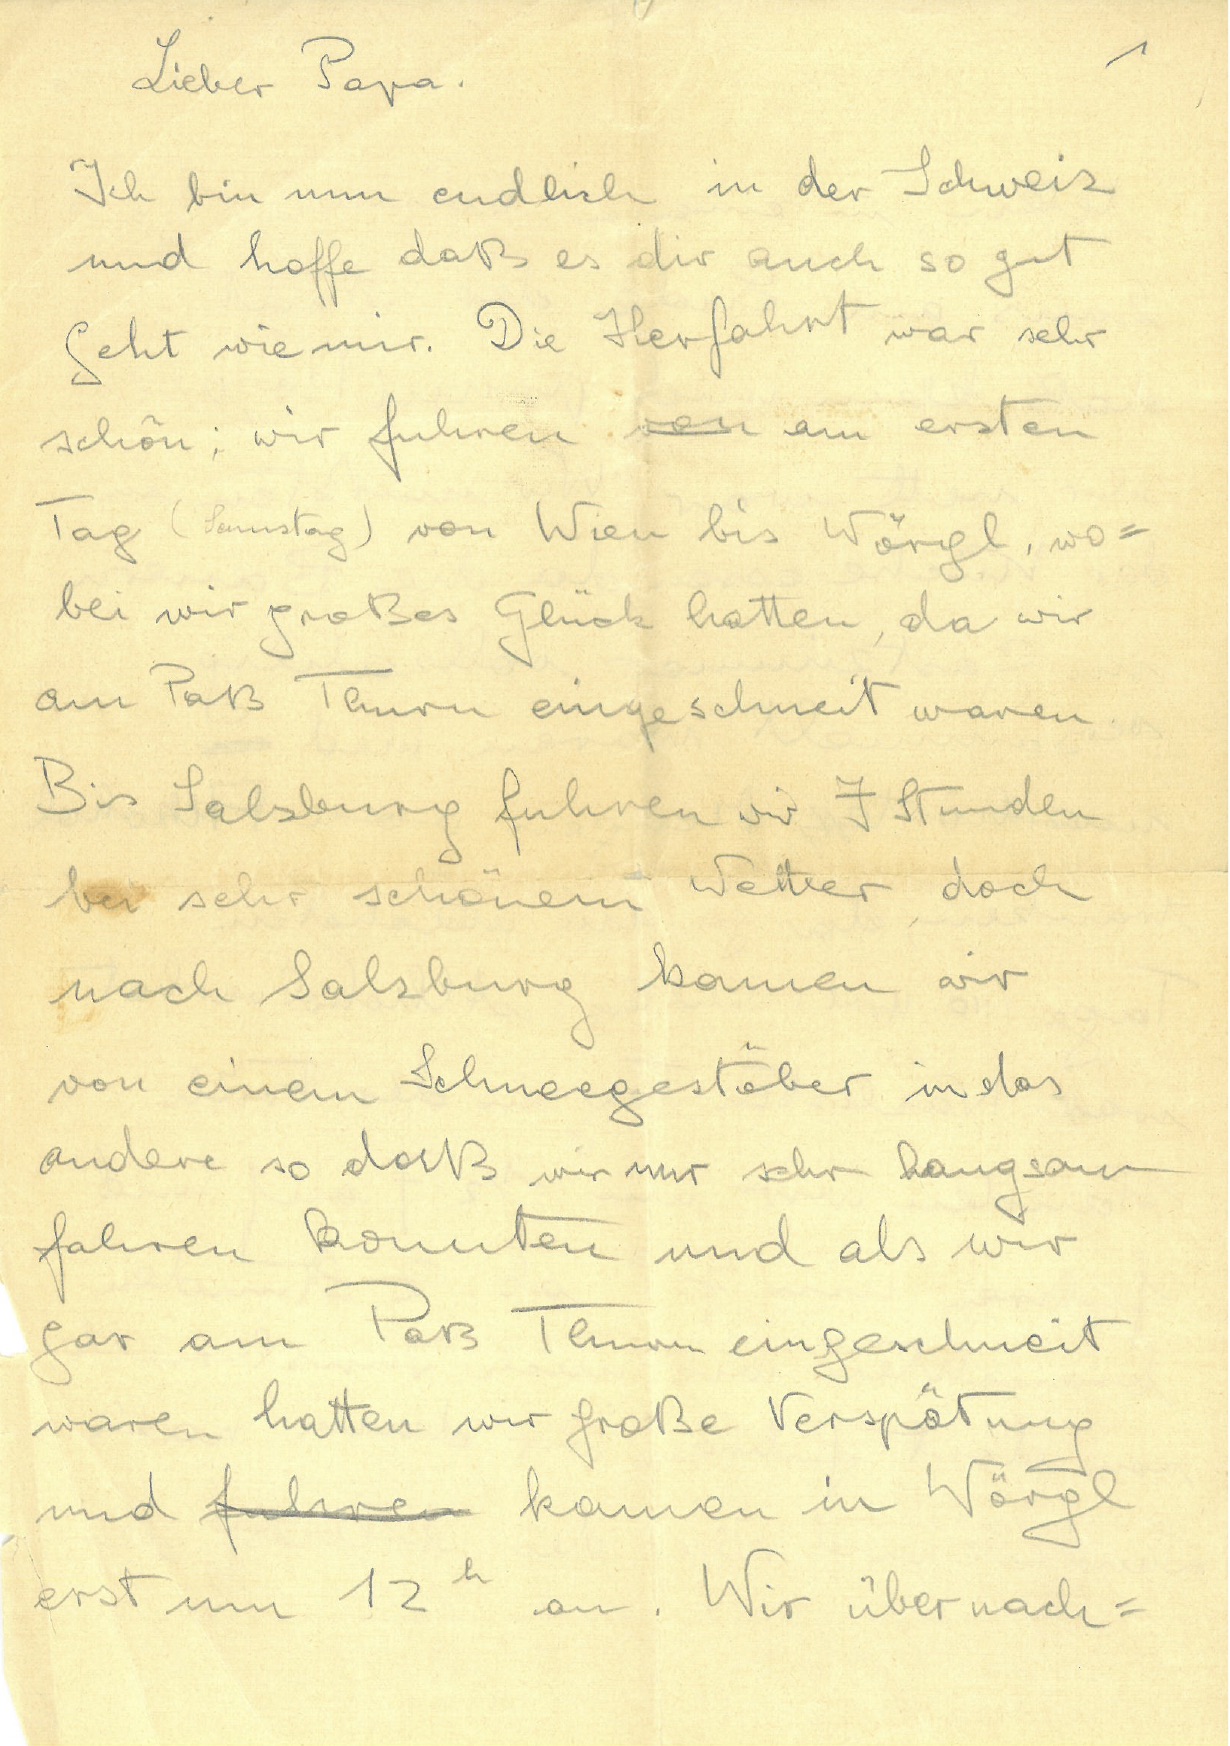 1
Lieber Papa.
Ich bin nun endlich in der Schweiz
und hoffe daß es dir auch so gut
geht wie mir. Die Herfahrt war sehr
schön; wir fuhren von am ersten
Tag (Samstag) von Wien bis Wörgl, wo=
bei wir großes Glück hatten, da wir
am Paß Thurn eingeschneit waren.
Bis Salzburg fuhren wir 7 Stunden
bei sehr schönem Wetter, doch
nach Salzburg kamen wir
von einem Schneegestöber in das
andere so daß wir nur sehr langsam
fahren konnten und als wir
gar am Paß Thurn eingeschneit
waren hatten wir große Verspätung
und fuhren kamen in Wörgl
erst um 12 h an. Wir übernach=